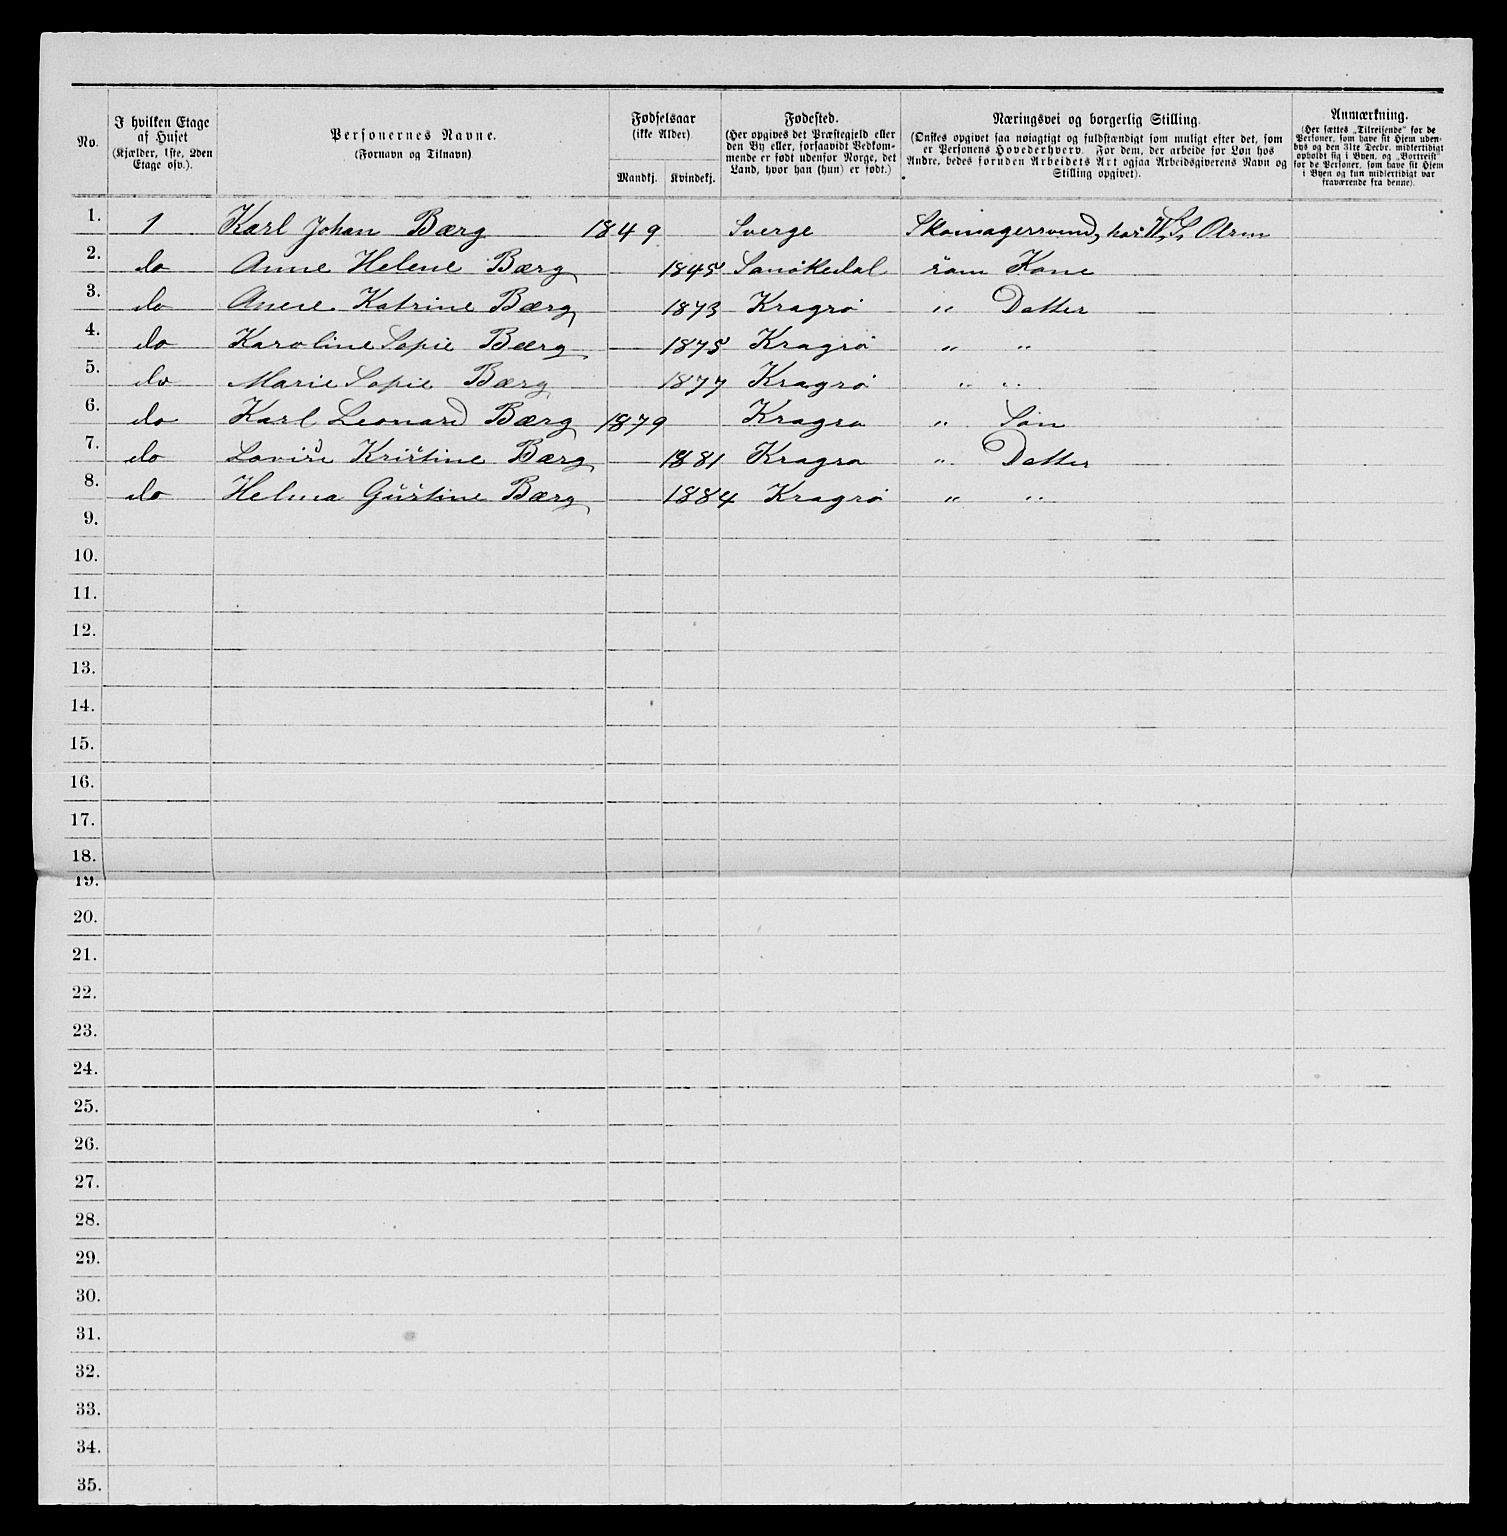 No.
I hvilken Etage af Huset
(Kjælder, 1ste, 2den Etage osv.).
Personernes Navne.
(Fornavn og Tilnavn)
Fødselsaar
(ikke Alder)
Mandkj. Kvindekj.
Fødested.
(Her opgives det Præstegjeld eller
den By eller, forsaavidt Vedkom-
mende er født udenfor Norge, det
Land, hvor han (hun) er født.)
Næringsvei og borgerlig Stilling.
(Ønskes opgivet saa nøiagtigt og fuldstændigt som muligt efter det, som
er Personens Hovederhverv. For dem, der arbeide for Løn hos
Andre, bedes foruden Arbeidets Art ogsaa Arbeidsgiverens Navn og
Stilling opgivet).
Anmærkning.
(Her sættes „Tilreisende" for de
Personer, som have sit Hjem uden-
bys og den 31te Decbr. midlertidigt
opholdt sig i Byen, og „Bortreist"
for de Personer, som have sit Hjem
i Byen og kun midlertidigt var
fraværende fra denne).
1. 1 Karl Johan Bærg 1849 Sverge Skomagersvend, hos W, S,
2. do Anne Helene Bærg 1845 Sanøkedal som Kone
3. do Anne Katrine Bærg 1873 Kragrø " Datter
4. do Karoline Sopie Bærg 1875 Kragrø " "
5. do Marie Sopie Bærg 1877 Kragrø " "
6. do Karl Leonard Bærg 1879 Kragrø " Søn
7. do Lovise Kristine Bærg 1881 Kragrø " Datter
8. do Helma Gustine Bærg 1884 Kragrø " "
9.
10.
11.
12.
13.
14.
15.
16.
17.
18.
19.
20.
21.
22.
23.
24.
25.
26.
27.
28.
29.
30.
31.
32.
33.
34.
35.